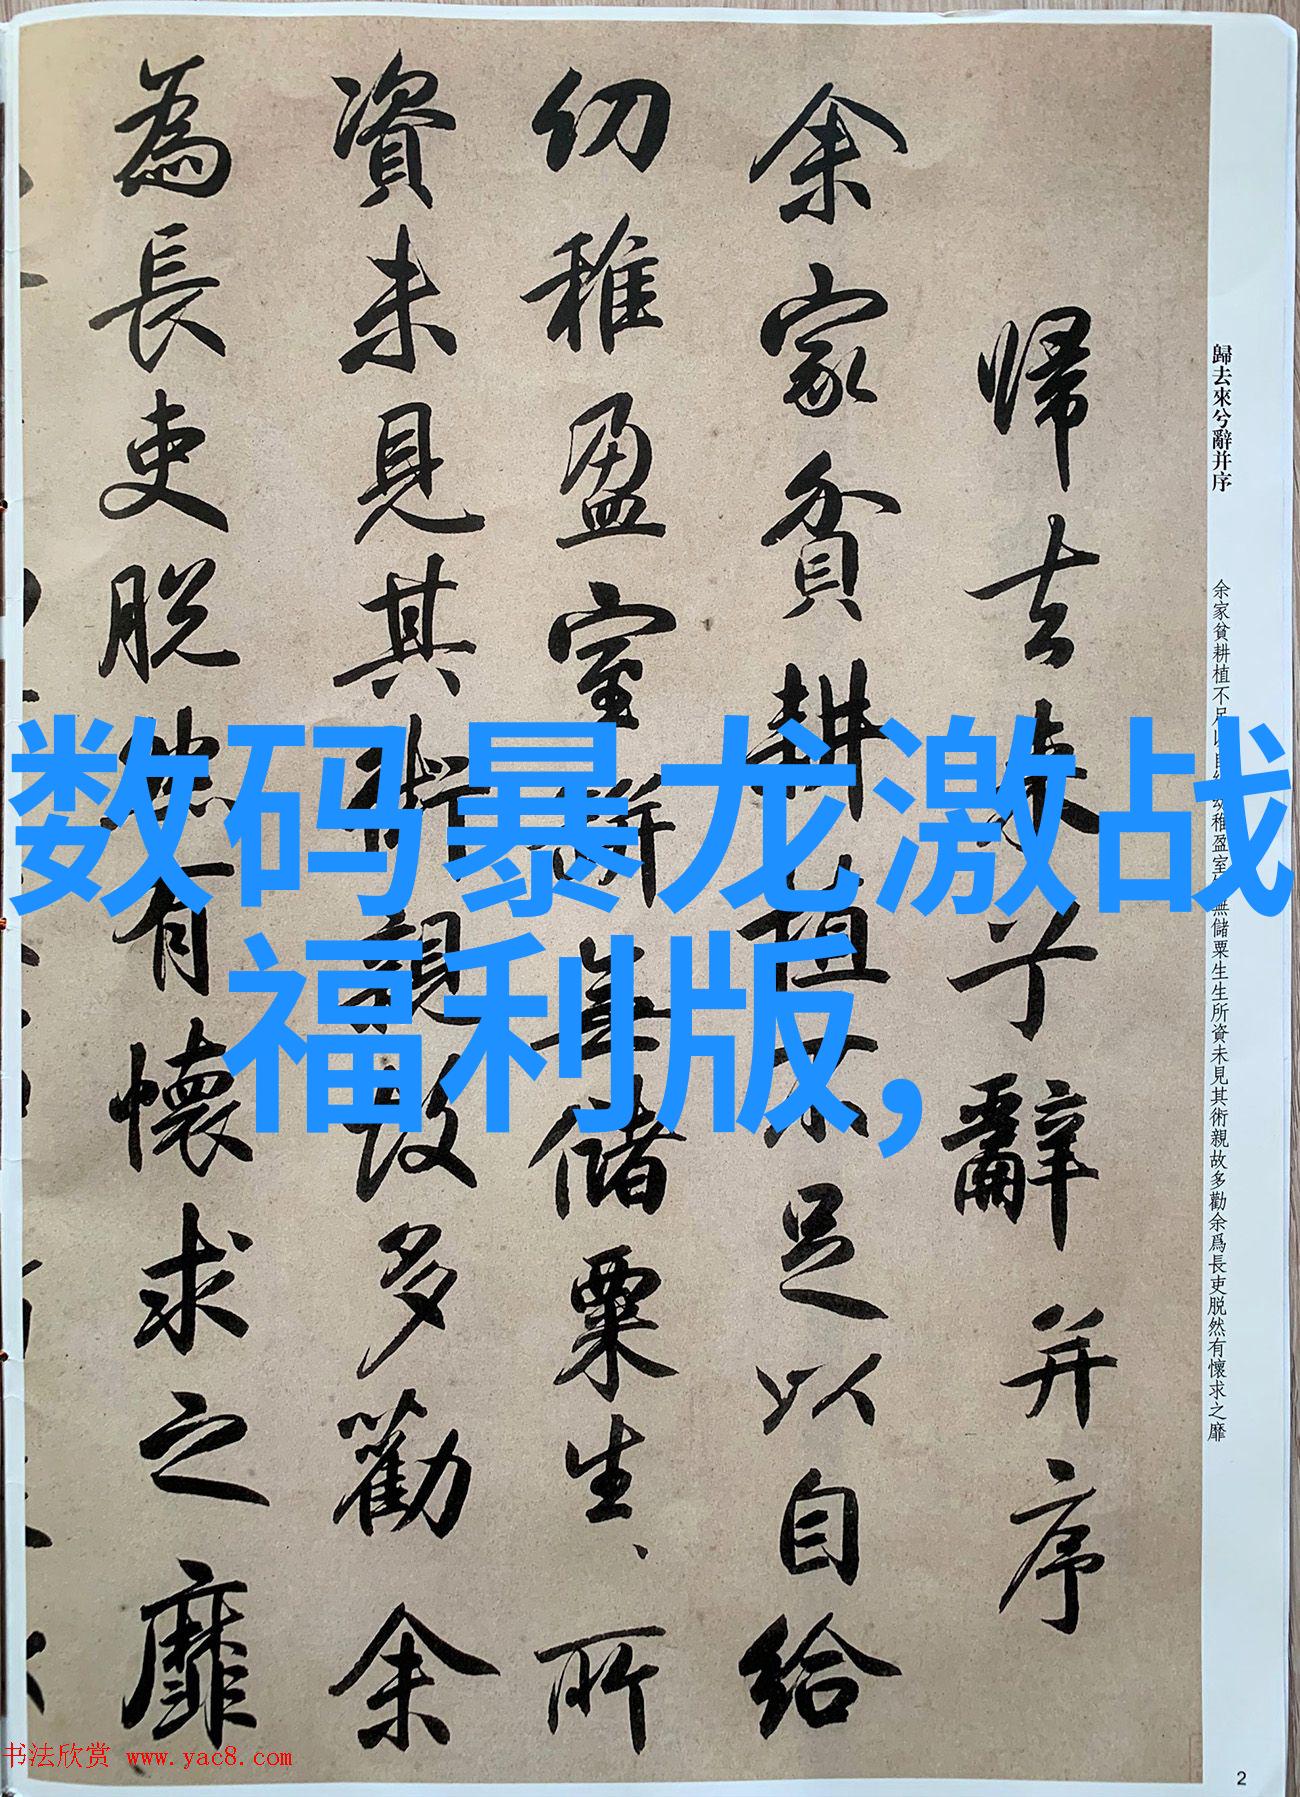 歸去來兮辭并序
余家貧耕植不足以自給幼稚盈室缾無儲粟生生所資未見其術親故多勸余爲長吏脱然有懷求之靡
帰去来兮辭并序
余家貧耕植不足以自給
幼稚盈室缾無儲粟生、所
資未見其術親故多勸余
為長吏脱然有懷求之靡
数码暴龙激战
福利版,
书法欣赏 www.yac8.com
2